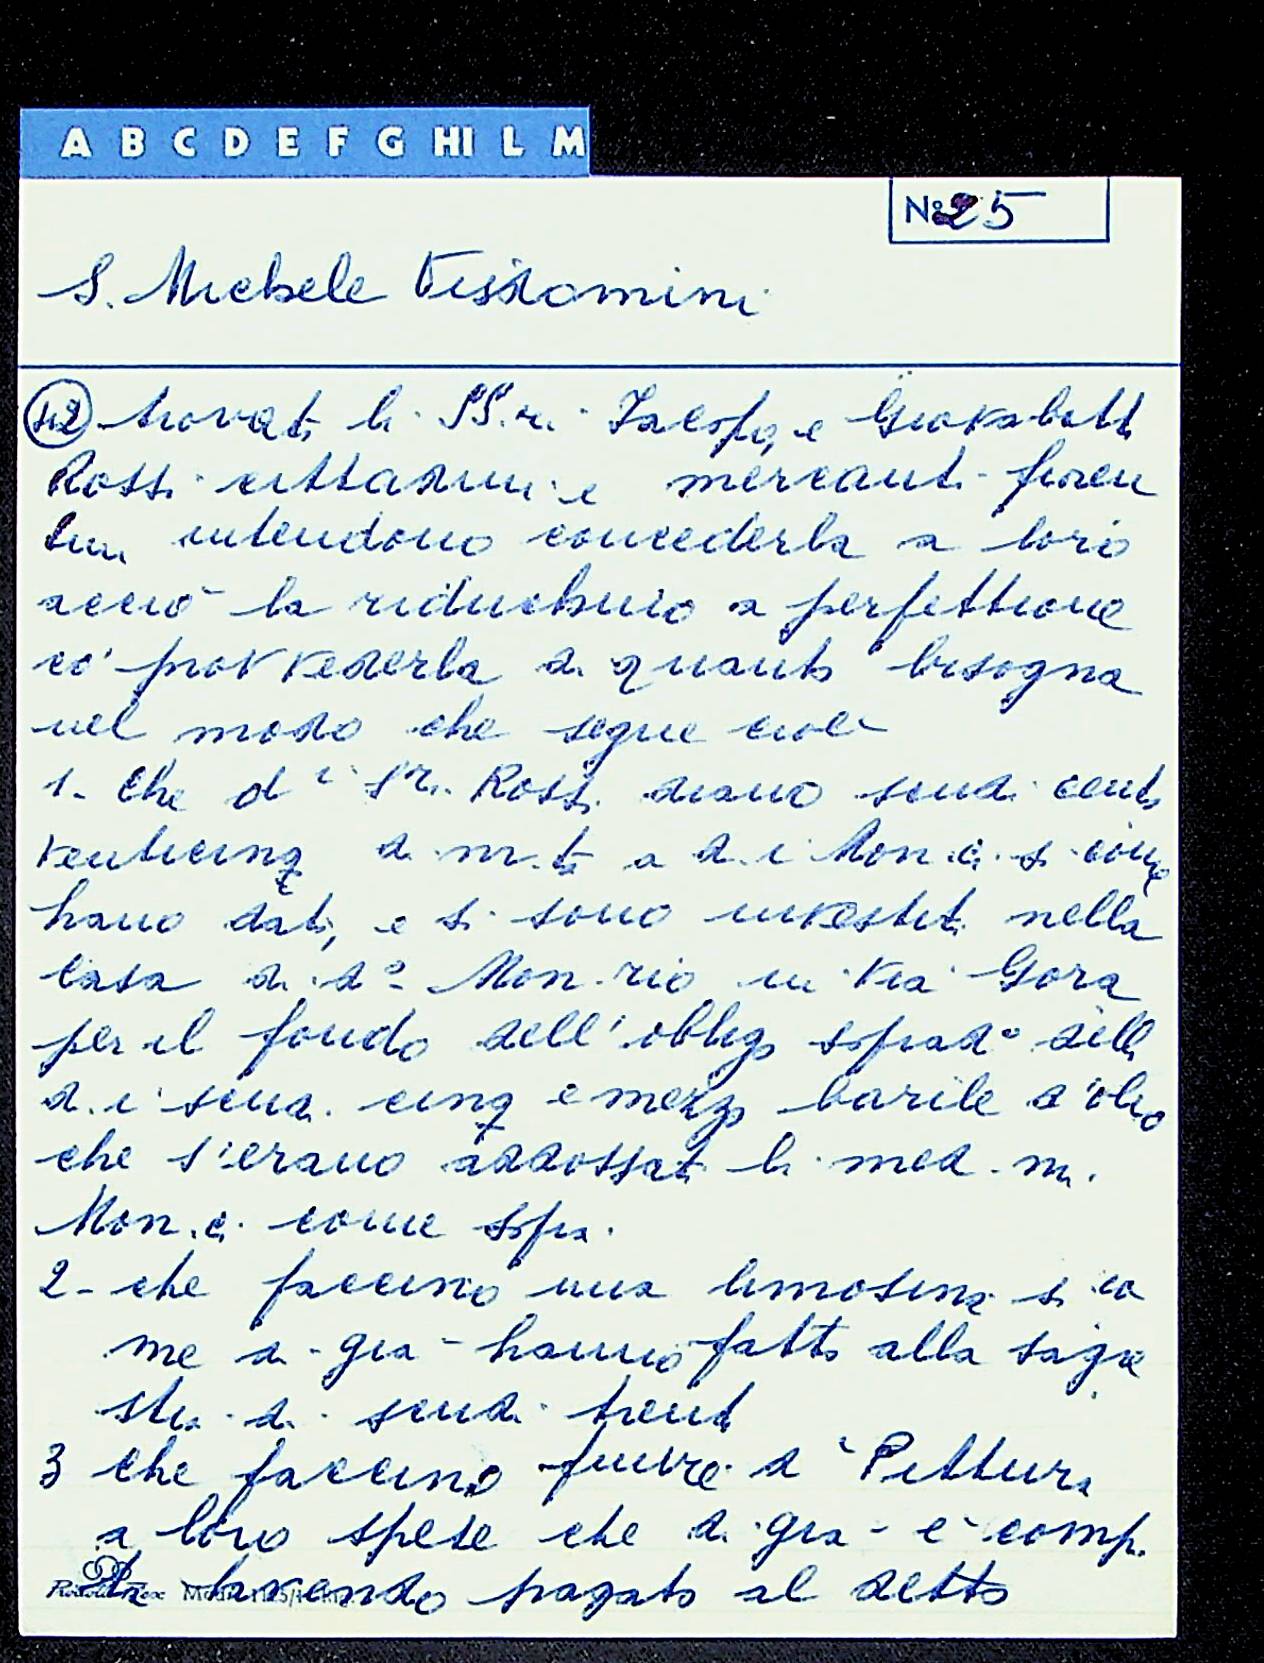 A B C D E F G HI L M
N° 25
S. Michele Visdomini
42 trovati li SS.ri Jacopo, e Giovabatt
Rossi cittadini e mercanti fioren
tini intendono concederla a loro
acciò la riduchino a perfettione
co' provvederla di quanto bisogna
nel modo che segue cioè
1- Che d i Sri. Rossi diano scudi cento
venticinq di m.ta a d. i Mon.ci si come
hano dati, e si sono investiti nella
casa di do Mon.rio in via Gora
per il fondo dell'obbligo soprado delli
d. i scudi cinq e mezzo barile d'olio
che s'erano addossati li med.mi
Mon.ci come sopra.
2- che faccino una limosina si co
me di già hanno fatto alla sagre
stia di scudi trenta
3 che faccino finire d Pittura
a loro spese che di già è comp.
ta havendo pagato al detto